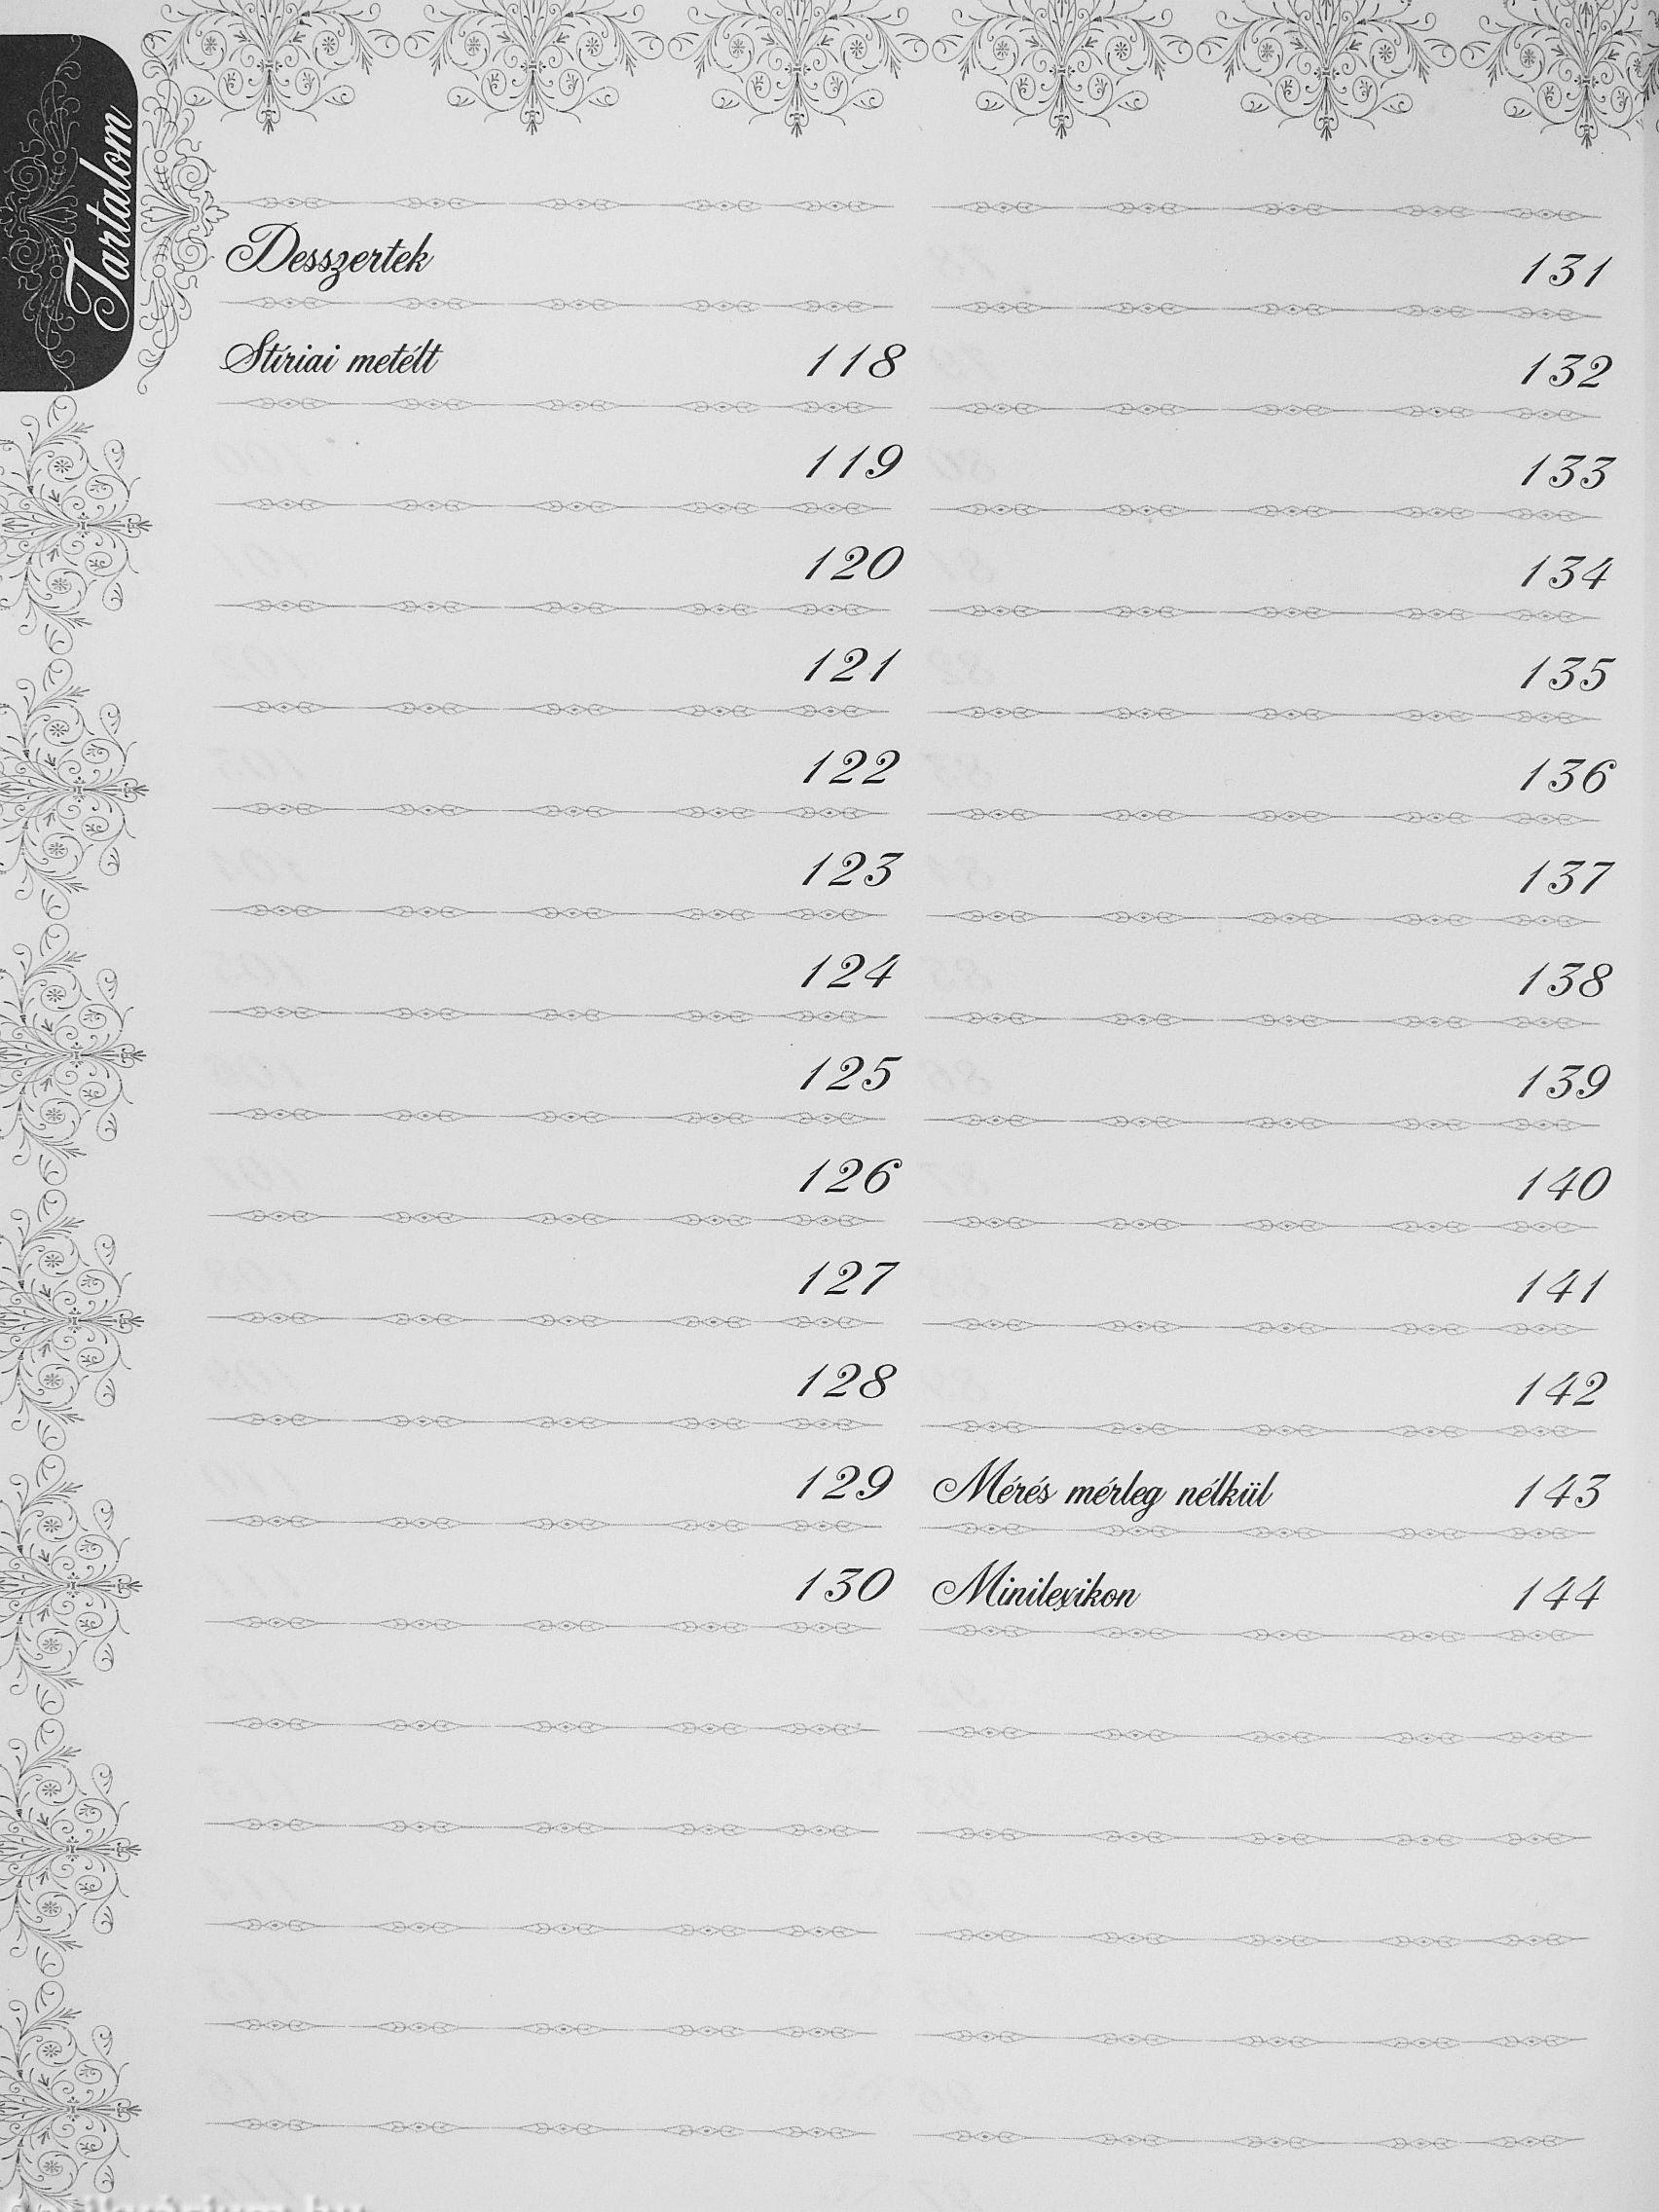 Tartalom
Desszertek
Stíriai metélt 118
119
120
121
122
123
124
125
126
127
128
129
130
131
132
133
134
135
136
137
138
139
140
141
142
Mérés mérleg nélkül 143
Minilexikon 144